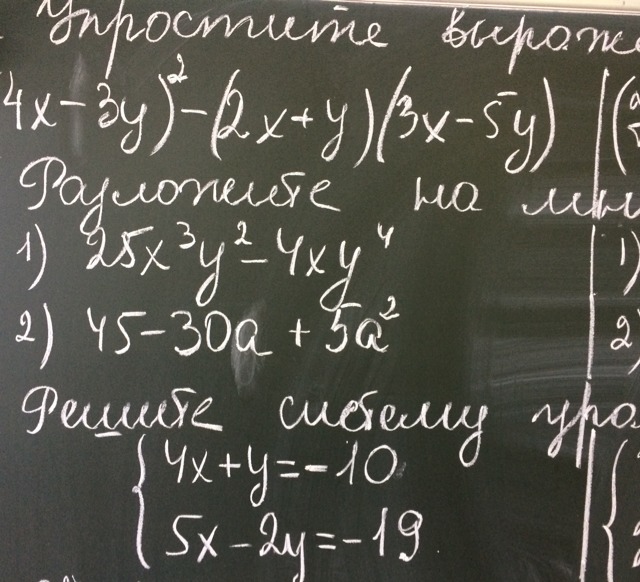 Упростите
4x-3y)²-(2x+y)(3x-5y)
Разложите на
1) 25x³y²-4xy⁴
1)
2) 45-30a+5a²
2)
Решите систему
4x+y=-10
5x-2y=-19